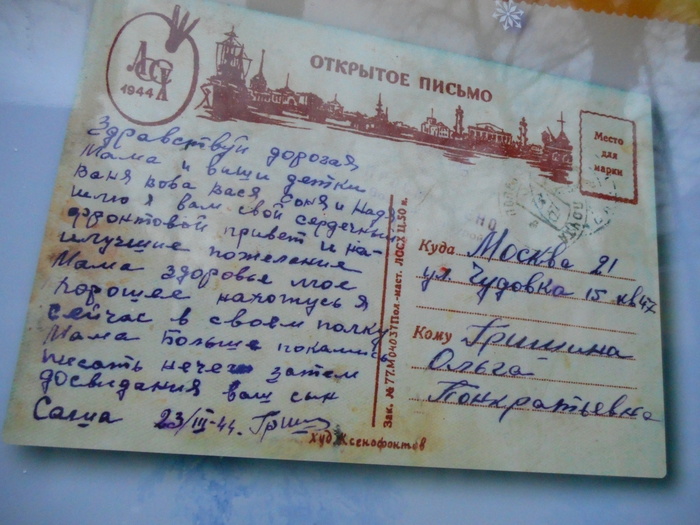 ЛССХ
1944
ОТКРЫТОЕ ПИСЬМО
Место
для
марки
Здравствуй дорогая
Мама и ваши детки
Ваня Вова Вася Соня и Надя
шлю я вам свой сердечный
фронтовой привет и на-
илучшие пожелание
Мама здоровье мое
хорошее нахожусь я
сейчас в своем полку
Мама больше пока
писать нечего затем
досвидания ваш сын
Саша 23/III-44. Гришин
Зак. № 77. М04037 Пол.-маст. ЛОСХ Ц. 50 к.
Куда Москва 21
ул. Чудовка 15 кв 47
Кому Гришина
Ольга
Понкратьевна
Худ. Ксенофонтов